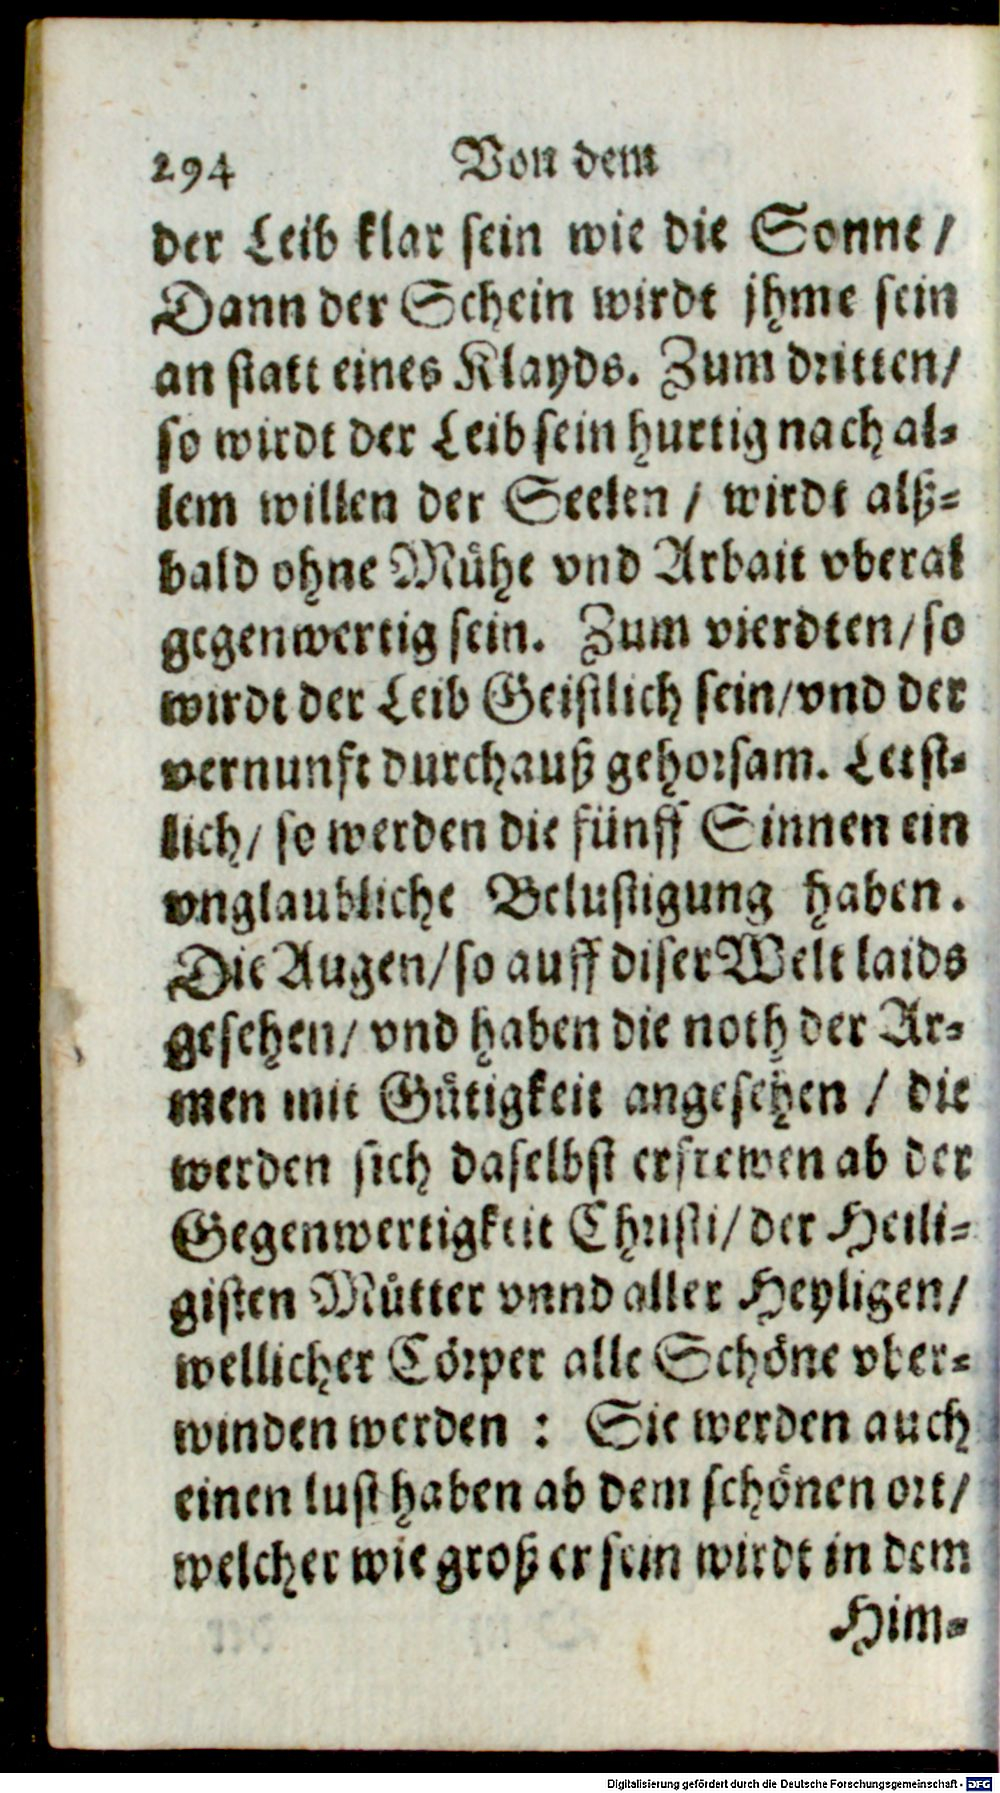 294 Von dem
der Leib klar sein wie die Sonne /
Dann der Schein wirdt jhme sein
an statt eines Klayds. Zum dritten /
so wirdt der Leib sein hurtig nach al-
lem willen der Seelen / wirdt alß-
bald ohne Mühe vnd Arbait vberal
gegenwertig sein. Zum vierdten / so
wirdt der Leib Geistlich sein / vnd der
vernunft durchauß gehorsam. Letst-
lich / so werden die fünff Sinnen ein
vnglaubliche Belustigung haben.
Die Augen / so auff diser Welt laids
gesehen / vnd haben die noth der Ar-
men mit Gütigkeit angesehen / die
werden sich daselbst erfrewen ab der
Gegenwertigkeit Christi / der Heili-
gisten Mütter vnnd aller Heyligen /
wellicher Cörper alle Schöne vber-
winden werden : Sie werden auch
einen lust haben ab dem schönen ort /
welcher wie groß er sein wirdt in dem
Him-
Digitalisierung gefördert durch die Deutsche Forschungsgemeinschaft - DFG